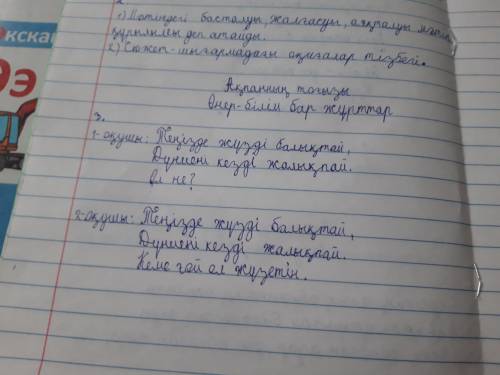 1) Мәтіндегі басталуы, жалғасуы, аяқталуы мәтін
құрылымы деп атайды.
2) Сюжет-шығармадағы оқиғалар тізбегі.
Ақпанның тоғызы
Өнер-білім бар жұрттар
3.
1-оқушы: Теңізде жүзді балықтай,
Дүниені кезді жалықпай.
Ол не?
2-оқушы: Теңізде жүзді балықтай,
Дүниені кезді жалықпай.
Кеме ғой ол жүзетін.